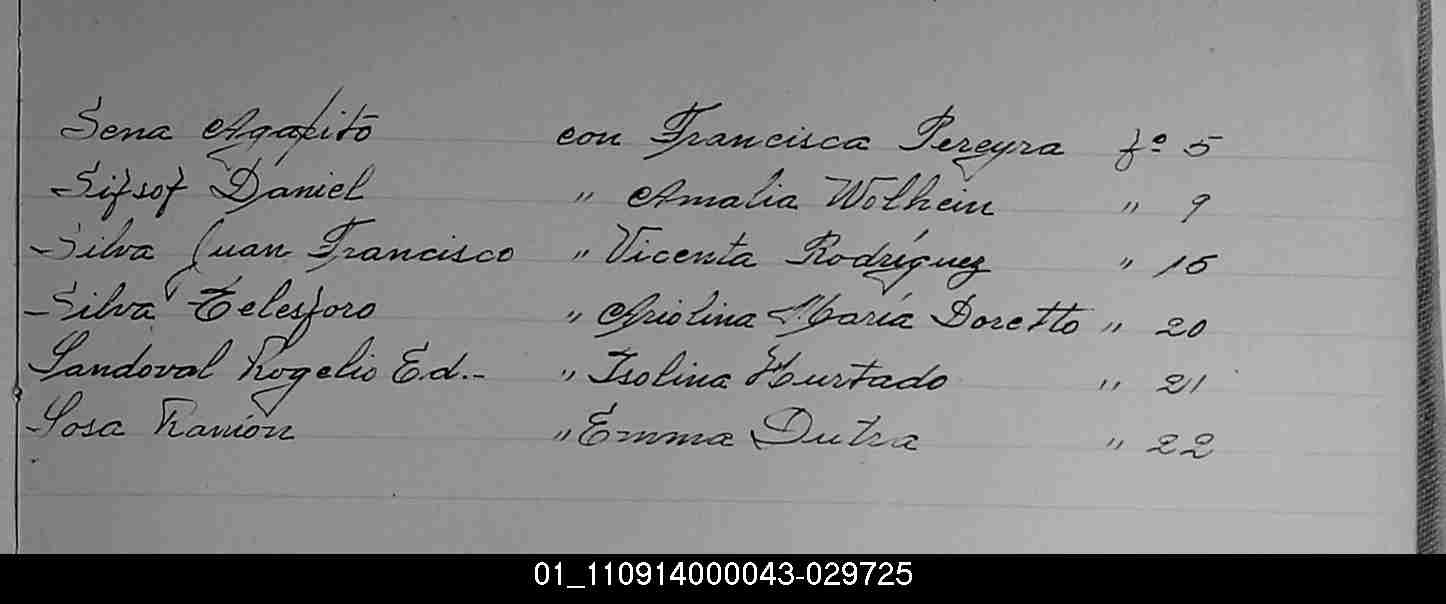 Sena Agapito con Francisca Pereyra fº 5
Sifsof Daniel " Amalia Wolhein " 9
Silva Juan Francisco " Vicenta Rodríguez " 15
Silva Telesforo " Ariolina María Doretto " 20
Sandoval Rogelio Ed.- " Isolina Hurtado " 21
Sosa Ramón " Emma Dutra " 22
01_110914000043-029725